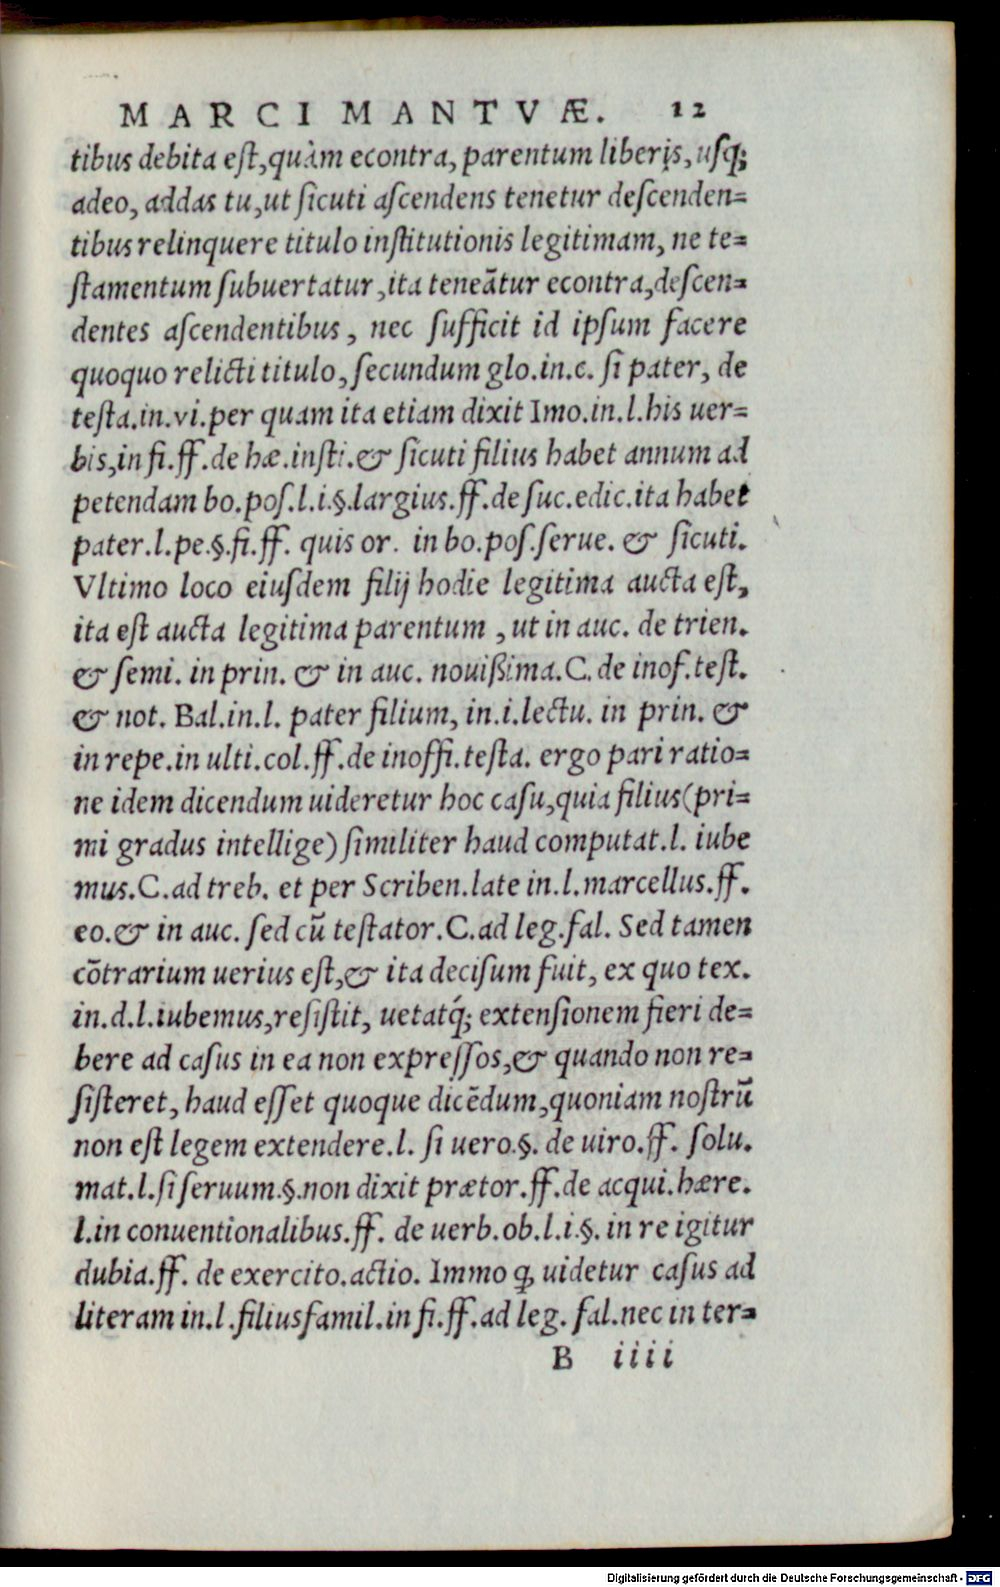 MARCI MANTVÆ. 12
tibus debita eſt,quàm econtra, parentum liberis, uſq;
adeo, addas tu,ut ſicuti aſcendens tenetur deſcenden=
tibus relinquere titulo inſtitutionis legitimam, ne te=
ſtamentum ſubuertatur ,ita teneãtur econtra,deſcen=
dentes aſcendentibus, nec ſufficit id ipſum facere
quoquo relicti titulo, ſecundum glo.in.c. ſi pater, de
teſta.in.vi.per quam ita etiam dixit Imo.in.l.his uer=
bis,in fi.ff.de hæ.inſti.& ſicuti filius habet annum ad
petendam bo.poſ.l.i.§.largius.ff.de ſuc.edic.ita habet
pater.l.pe.§.fi.ff. quis or. in bo.poſ.ſerue. & ſicuti.
Vltimo loco eiuſdem filij hodie legitima aucta eſt,
ita eſt aucta legitima parentum , ut in auc. de trien.
& ſemi. in prin. & in auc. nouißima.C. de inof.teſt.
& not. Bal.in.l. pater filium, in.i.lectu. in prin. &
in repe.in ulti.col.ff.de inoffi.teſta. ergo pari ratio=
ne idem dicendum uideretur hoc caſu,quia filius(pri=
mi gradus intellige) ſimiliter haud computat.l. iube
mus.C.ad treb. et per Scriben.late in.l.marcellus.ff.
eo.& in auc. ſed cũ teſtator.C.ad leg.fal. Sed tamen
cõtrarium uerius eſt,& ita deciſum fuit, ex quo tex.
in.d.l.iubemus,reſiſtit, uetatq́; extenſionem fieri de=
bere ad caſus in ea non expreſſos,& quando non re=
ſiſteret, haud eſſet quoque dicẽdum,quoniam noſtrũ
non eſt legem extendere.l. ſi uero.§. de uiro.ff. ſolu.
mat.l.ſi ſeruum.§.non dixit prætor.ff.de acqui.hære.
l.in conuentionalibus.ff. de uerb.ob.l.i.§. in re igitur
dubia.ff. de exercito.actio. Immo ꝙ uidetur caſus ad
literam in.l.filiusfamil.in fi.ff.ad leg. fal.nec in ter=
B iiii
Digitalisierung gefördert durch die Deutsche Forschungsgemeinschaft - DFG